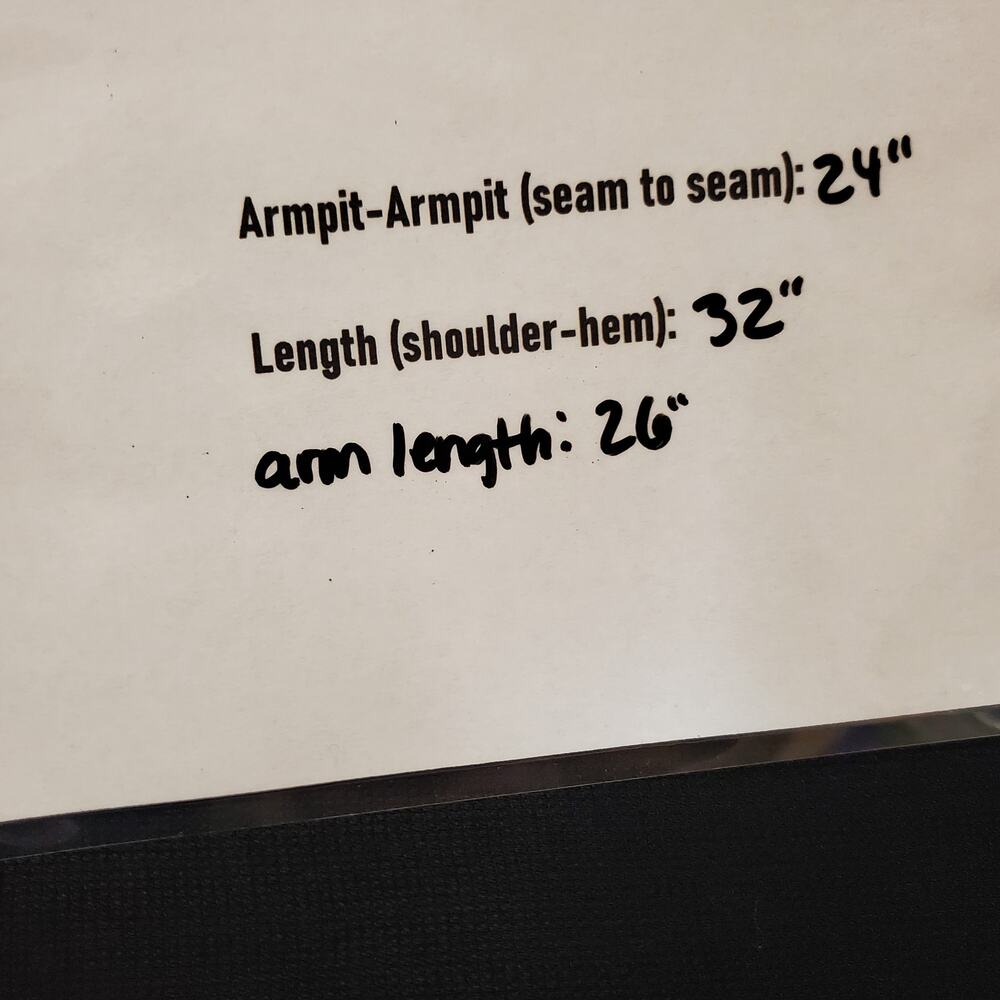 Armpit-Armpit (seam to seam): 24"
Length (shoulder-hem): 32"
arm length: 26"